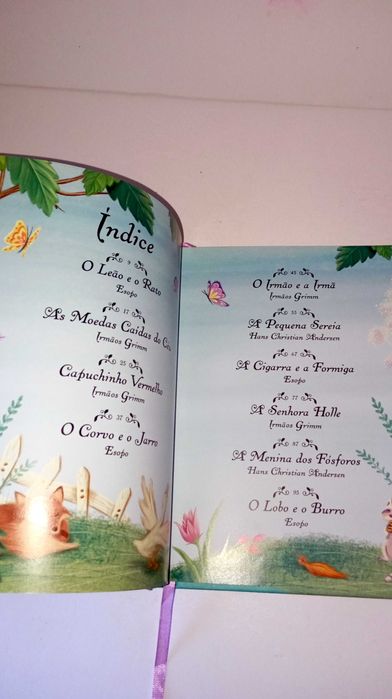 Índice
9
O Leão e o Rato
Esopo
17
As Moedas Caídas do
Irmãos Grimm
25
Capuchinho Vermelho
Irmãos Grimm
37
O Corvo e o Jarro
Esopo
45
O Irmão e a Irmã
Irmãos Grimm
55
A Pequena Sereia
Hans Christian Andersen
67
A Cigarra e a Formiga
Esopo
77
A Senhora Holle
Irmãos Grimm
87
A Menina dos Fósforos
Hans Christian Andersen
95
O Lobo e o Burro
Esopo